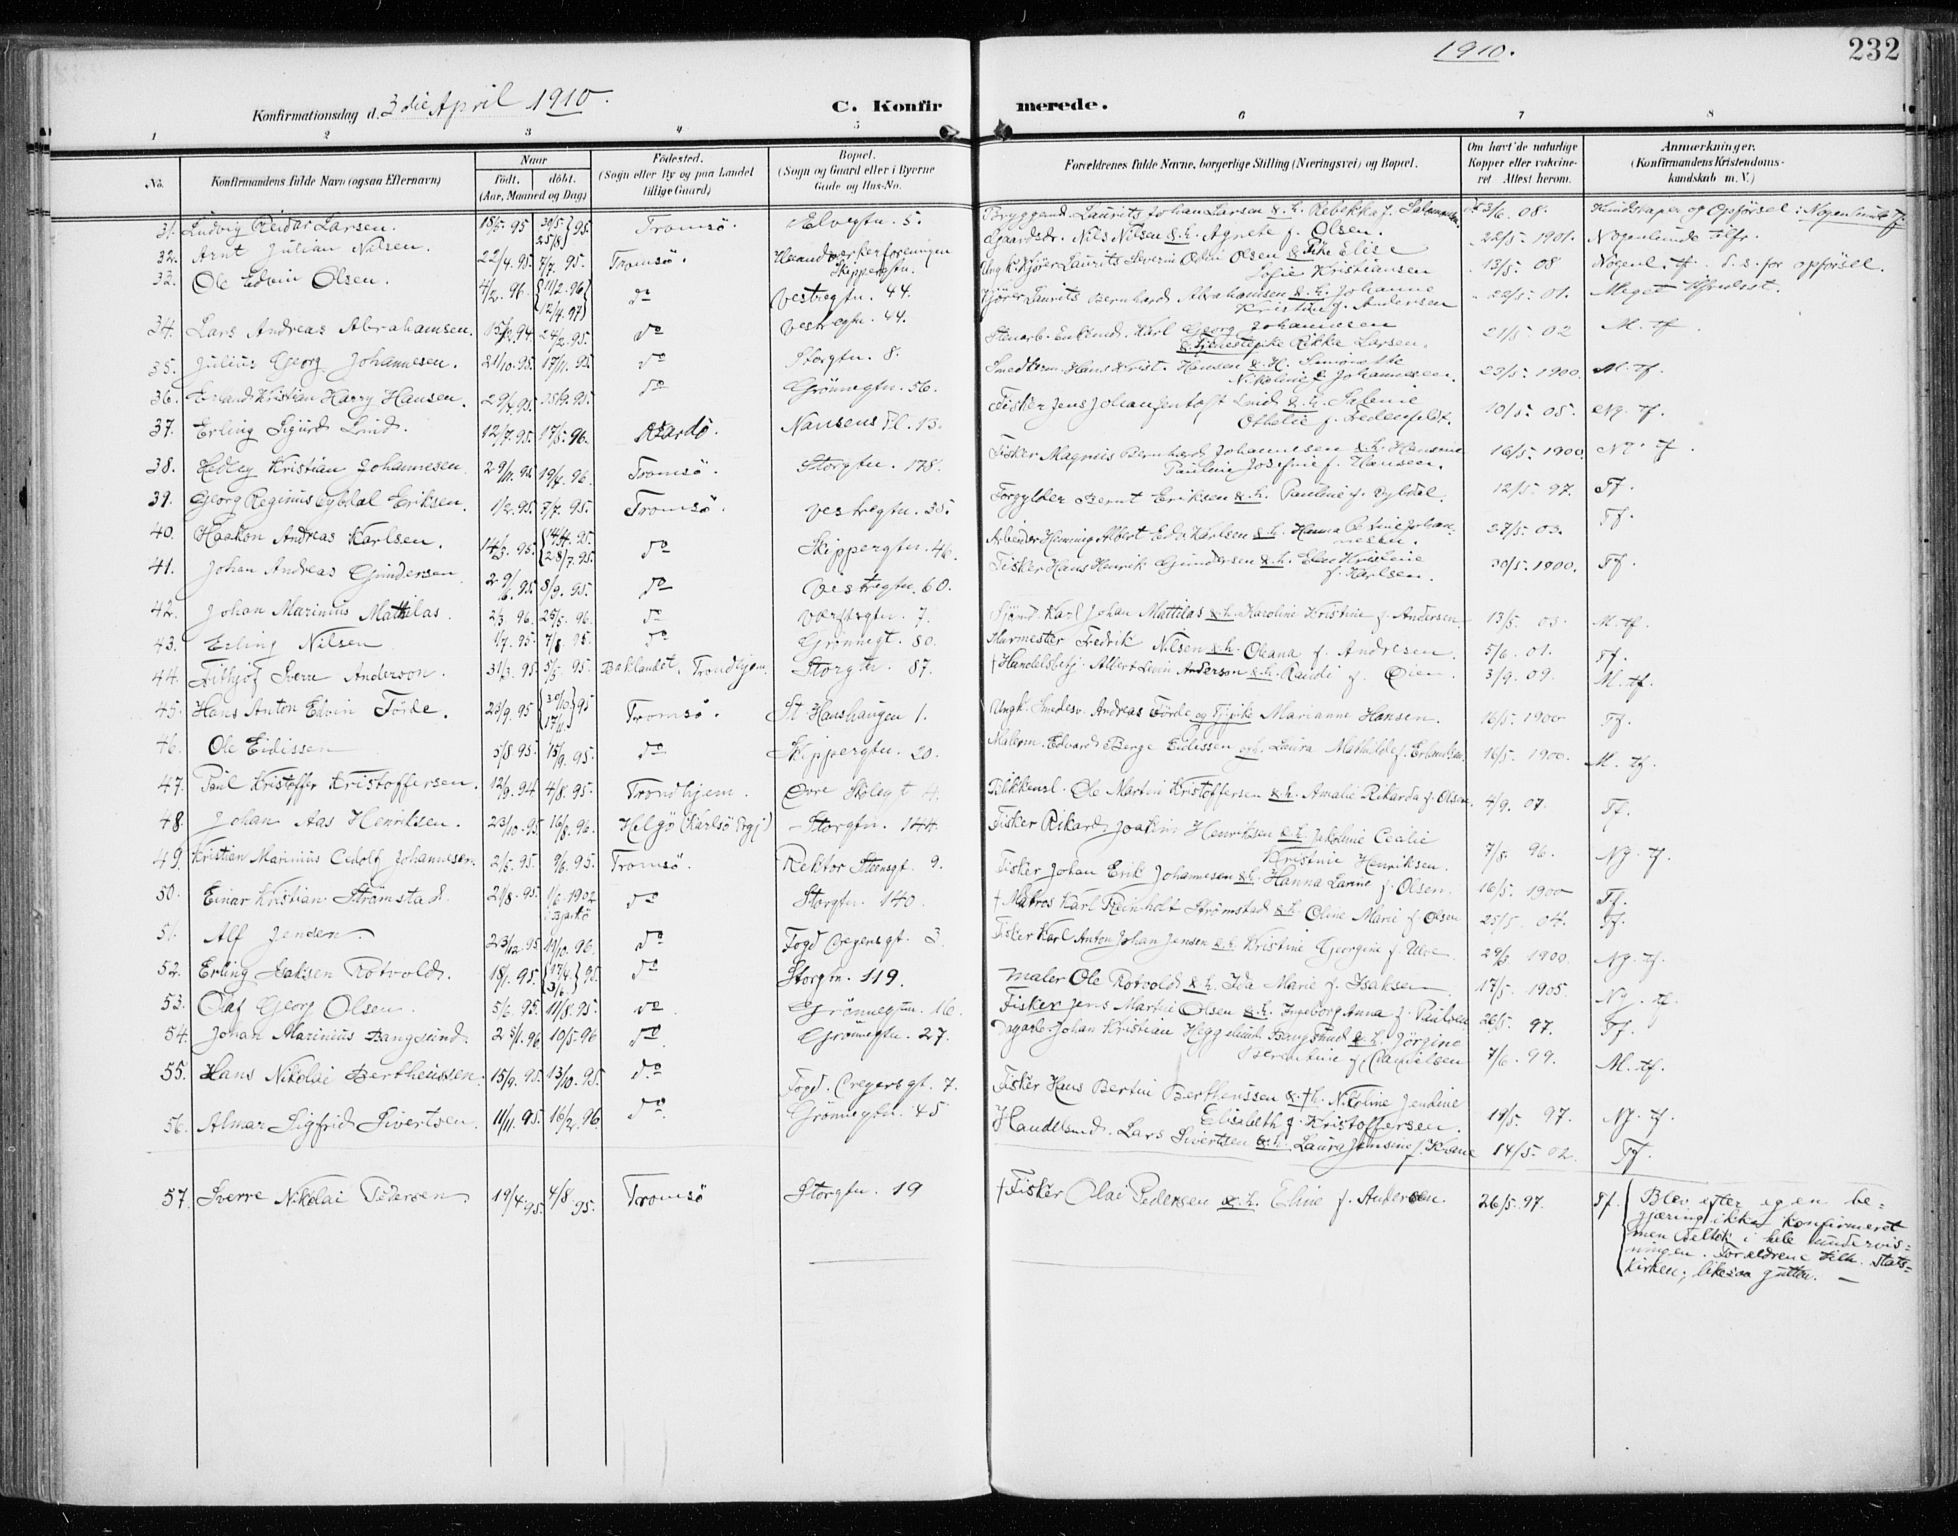 1910.
232
Konfirmationsdag d. 3die April 1910.
C. Konfirmerede.
1 2 3 4 5 6 7 8
No.
Konfirmandens fulde Navn (ogsaa Efternavn)
Naar
født. døbt.
(Aar, Maaned og Dag)
Fødested.
(Sogn eller By og paa Landet
tillige Gaard)
Bopæl.
(Sogn og Gaard eller i Byerne
Gade og Hus-No.
Forældrenes fulde Navne, borgerlige Stilling (Næringsvei) og Bopæl.
Om havt de naturlige
Kopper eller vakcine-
ret Attest herom.
Anmærkninger.
(Konfirmandens Kristendoms-
kundskab m. V.)
31. Ludvig Reidar Larsen. 18/5 95 30/5 25/8 } 95. Tromsö. Elvegtn. 5. Bryggemd. Laurits Johan Larsen & h. Rebekka f. 3/6. 08. Kundskaper og Opførsel: Nogenlunde Tf.
32. Arnt Julian Nilsen. 22/4. 95 7/7. 95. Tromsö. Haandverkerforeningen Skippergtn. Gaardsdr. Nils Nilsen & h. Agnete f. Olsen. 22/5. 1901. Nogenlunde tilfr.
33. Ole Edvin Olsen. 4/2. 96. {11/2. 96 12/4. 97} do Vestregtn. 44. Ungk. Kjører Laurits Severin Olsen & Pike Elise Sofie Kristiansen 13/5. 08 Nogenl. tf. for opførsel.
34. Lars Andreas Abrahamsen. 15/2. 94. 24/2. 95. do Vestregtn. 44. Kjører Laurits Bernhard Abrahamsen & h. Johanne Kristine f. Andersen 22/5. 01. Meget tilfredsst.
35. Julius Georg Johannesen. 21/10. 95. 17/11. 95. do Storgtn. 8. Stenarb. Enkemd. Karl Georg Johannesen & Tjenestepike Rikke Larsen. 21/5 02 M. tf.
36. Erland Kristian Harry Hansen. 29/7. 95. 15/9. 95. do Grönnegtn. 56. Smedkarm. Hans Krist. Hansen & H. Nikoline f. Johannesen. 23/5. 1900. M. tf.
37. Erling Sigurd Lind. 12/7. 95. 17/5. 96. Vardö. Nansens Pl. 13. Fisker Jens Lind & h. Othelie f. 10/5. 05. Ng. tf.
38. Hedley Kristian Johannesen. 29/11. 95 19/4. 96. Tromsö. Storgtn. 178. Fisker Magnus Bernhard Johannesen & h. Hansine Pauline Josefine f. Hansen. 16/5. 1900 Ng. tf.
39. Georg Reginus Eriksen. 1/2. 95. 7/7. 95. Tromsö. Vestregtn. 35. Forgylder Bernt Eriksen & h. Pauline f. 12/5. 97. Tf.
40. Haakon Andreas Karlsen. 14/3. 95. {14/4. 95. 28/7. 95. do Skippergtn. 46. Arbeider Henning Albert Edv. Karlsen & h. Hanna Petrine Johannesen. 27/5. 03. Tf.
41. Johan Andreas Gundersen 29/6. 95 8/9. 95. do Vestregtn. 60. Fisker Hans Henrik Gundersen & h. Elen Kristine f. Karlsen. 30/5. 1900. Tf.
42. Johan Marinius Mattilas. 2/3. 96. 25/5. 96. do 7. Sjømd. Karl Johan Mattilas & h. Karoline Kristine f. Andersen 13/5. 05. M. tf.
43. Erling Nilsen 1/7. 95. 7/8. 95. do Grönnegt. 80. Murmester Fredrik Nilsen & h. Oleana f. Andresen. 5/6. 01. Tf.
44. Fithjof Sverre Anderson. 31/3. 95 5/5. 95. Baklandet, Trondhjem. Storgtn. 87. † Handelsbetj. Albert Anderson & h. Randi f. Øien. 3/9. 09. M. tf.
45. Hans Anton Edvin Förde. 23/9. 95 {30/10 17/11} 95 Tromsö. St. Hanshaugen 1. Ungk. Smedesv. Andreas Förde og Tjpike Marianne Hansen. 16/5. 1900 Tf.
46. Ole Eidissen 5/8. 95. 15/9. 95. do Skippergtn. 20. Malerm. Edvard Berge Eidissen og h. Laura Mathilde f. Erlandsen 16/5. 1900. M. tf.
47. Paul Kristoffer Kristoffersen. 12/9. 94 4/8. 95. Trondhjem. Övre Skolegt 4. Blikkensl. Ole Martin Kristoffersen & h. Amalie Rikarda f. Olsen. 4/9. 07. Tf.
48. Johan Aas Henriksen. 23/10. 95 16/8. 96. Helgö (Karlsö Prgj) Storgtn. 144. Fisker Rikard Joakim Henriksen & h. Jakobine Cecilie Kristine Henriksen. 7/8. 96. Ng. tf.
49. Kristian Marinius Johannesen. 2/5. 95. 9/6. 95. Tromsö. Rektor Steensgt. 9. Fisker Johan Erik Johannesen & h. Hanna Larine f. Olsen. 16/5. 1900 Tf.
50. Einar Kristian Strömstad. 21/8. 95 1/6. 1902 do Storgtn. 140. † Matros Karl Reinholt Strömstad & h. Oline Marie f. Olsen 25/5. 04. Tf.
51. Alf Jensen 23/12. 95 19/10. 96. do Fogd Dreyersgt. 3. Fisker Karl Anton Johan Jensen & h. Kristine Georgine f. 29/5. 1900. Ng. tf.
52. Erling Isaksen Rotvold. 18/1. 95. {17/4. 3/6.} 95. do Storgtn. 119. Maler Ole Rotvold & h. Ida Marie f. Isaksen 17/5. 1905. Ng. tf.
53. Olaf Georg Olsen. 5/6. 95 11/8. 95. do Grönnegtn. 16. Fisker Jens Martin Olsen & h. Ingeborg Anna f. Paulsen 26/5. 97. Tf.
54. Johan Marinius Bangsund. 25/1. 96 10/5. 96 do Grönnegtn. 27. Johan Kristian Heggelund Bangsund & h. Jörgine Berntine f. Danielsen 7/6. 99. M. tf.
55. Hans Nikolai Bertheussen. 15/9. 95. 13/10. 95. do Fogd. Dreyersgt. 7. Fisker Hans Bertin Bertheussen & † h. Nikoline Jendine Elisabeth f. Kristoffersen. 19/5. 97. Ng. tf.
56. Almar Sigfrid Sivertsen. 11/11. 95. 16/2. 96 do Grönnegtn. 45 Handelsmd. Lars Sivertsen & h. Laura Jensine f. Krane 14/5. 02. Tf.
57. Sverre Nikolai Pedersen 19/4. 95. 4/8 95. Tromsö Storgtn. 19 † Fisker Olai Pedersen & h. Eline f. Andersen. 26/5. 97. Tf. { Blev efter egen be-
gjæring ikke konfirmeret
men deltok i hele undervis-
ningen. Forældrene tilh. stats-
kirken; likesaa gutten. –